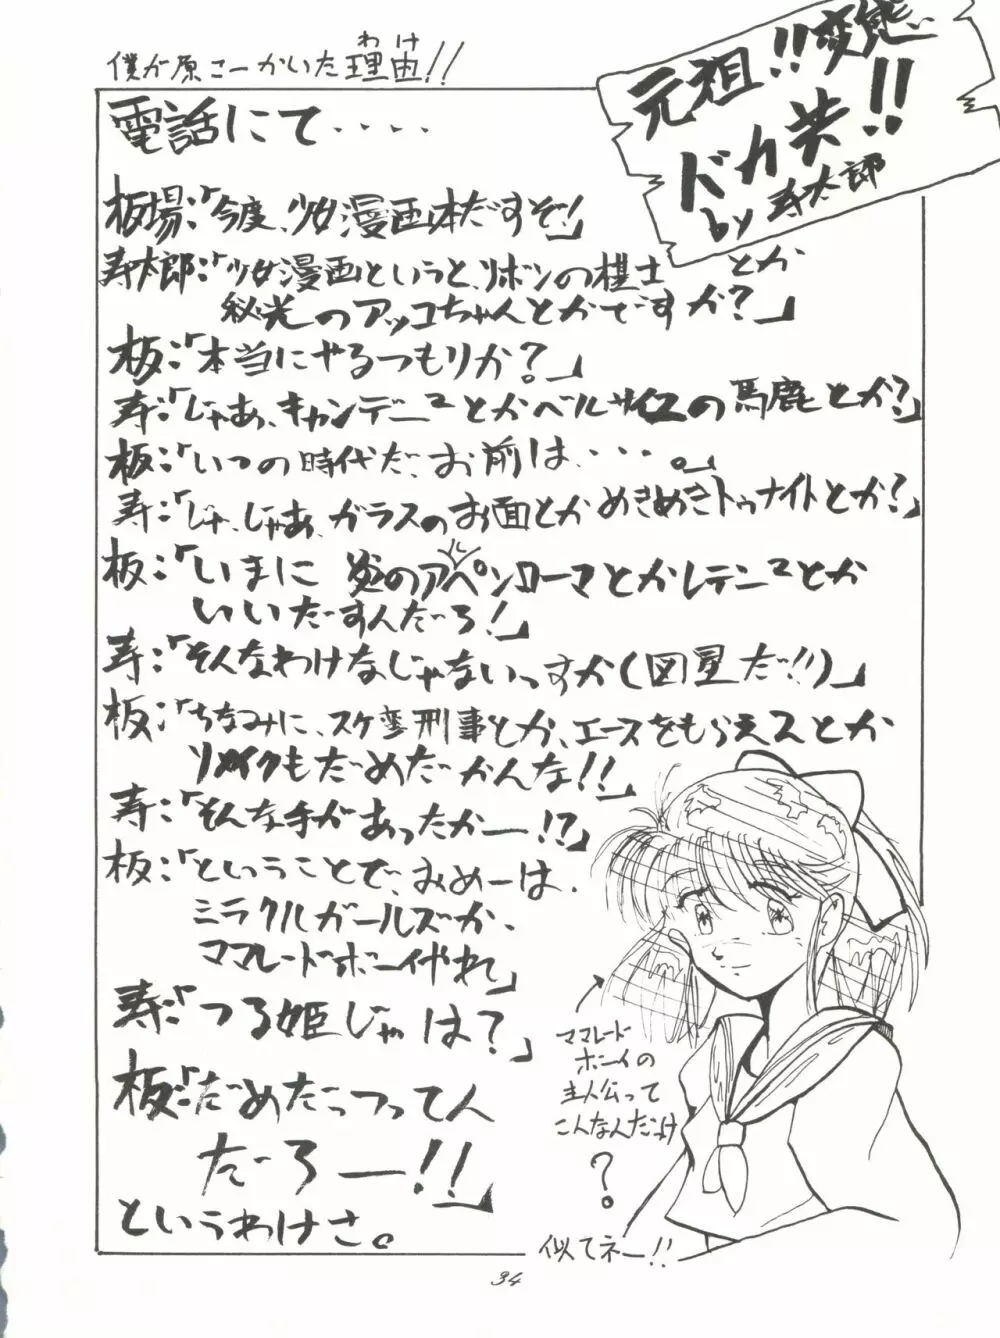 僕が原こーかいた理由!!
わけ
元祖!!変態
バカ笑!!
by 寿太郎
電話にて・・・・
板場:「今度、少女漫画本だすぞ!」
寿太郎:「少女漫画というと、リボンの棋士とか
秘光のアッコちゃんとかですか?」
板:「本当にやるつもりか?」
寿:「じゃあ、キャンデニ²とかベルサイユの馬鹿とか?」
板:「いつの時代だ、お前は・・・。」
寿:「じゃ、じゃあ、ガラスのお面とかめきめきトゥナイトとか?」
板:「いまに 炎のアルペンローマとかレテニ²とか
いいだすんだろ!」
寿:「そんなわけなじゃないっすか(図星だ!!)」
板:「ちなみに、スケ変刑事とか、エースをもらえ2とか
リメイクもだめだかんな!!」
寿:「そんな手があったかー!?」
板:「ということで、おめーは、
ミラクルガールズか、
ママレードボーイやれ」
寿:「つる姫じゃは?」
板:「だめだっつってん
だろー!!」
というわけさ。
ママレード
ボーイの
主人公って
こんなんだっけ
?
似てネー!!
34